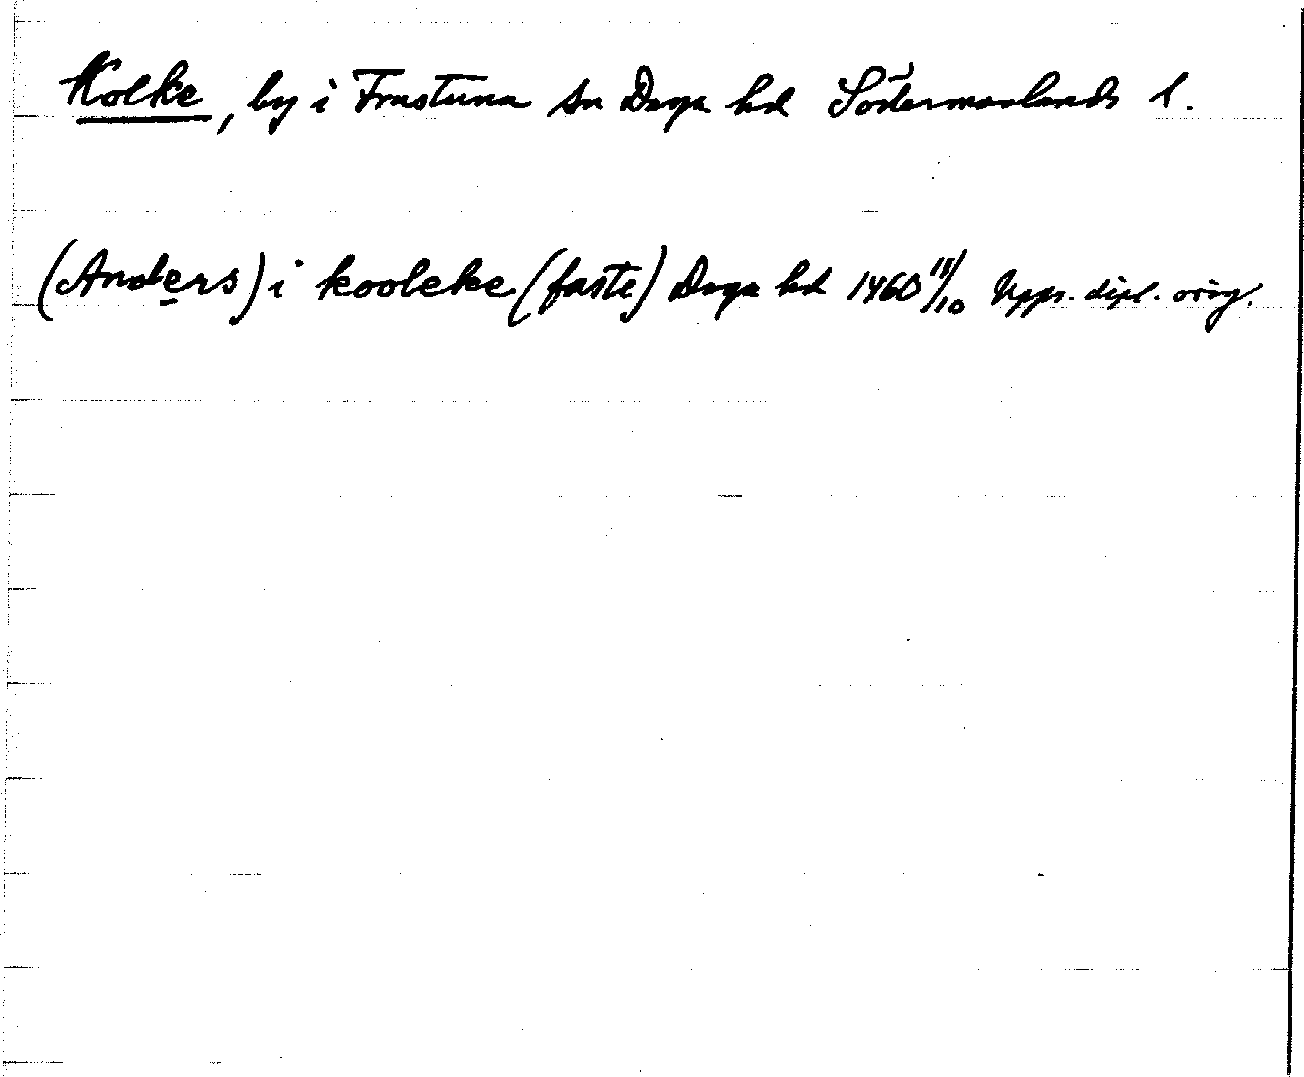 Kolke, by i Frustuna sn Daga hd Södermanlands l.
(Anders) i kooleke (faste) Daga hd 1460 11/10 Upps. dipl. orig.